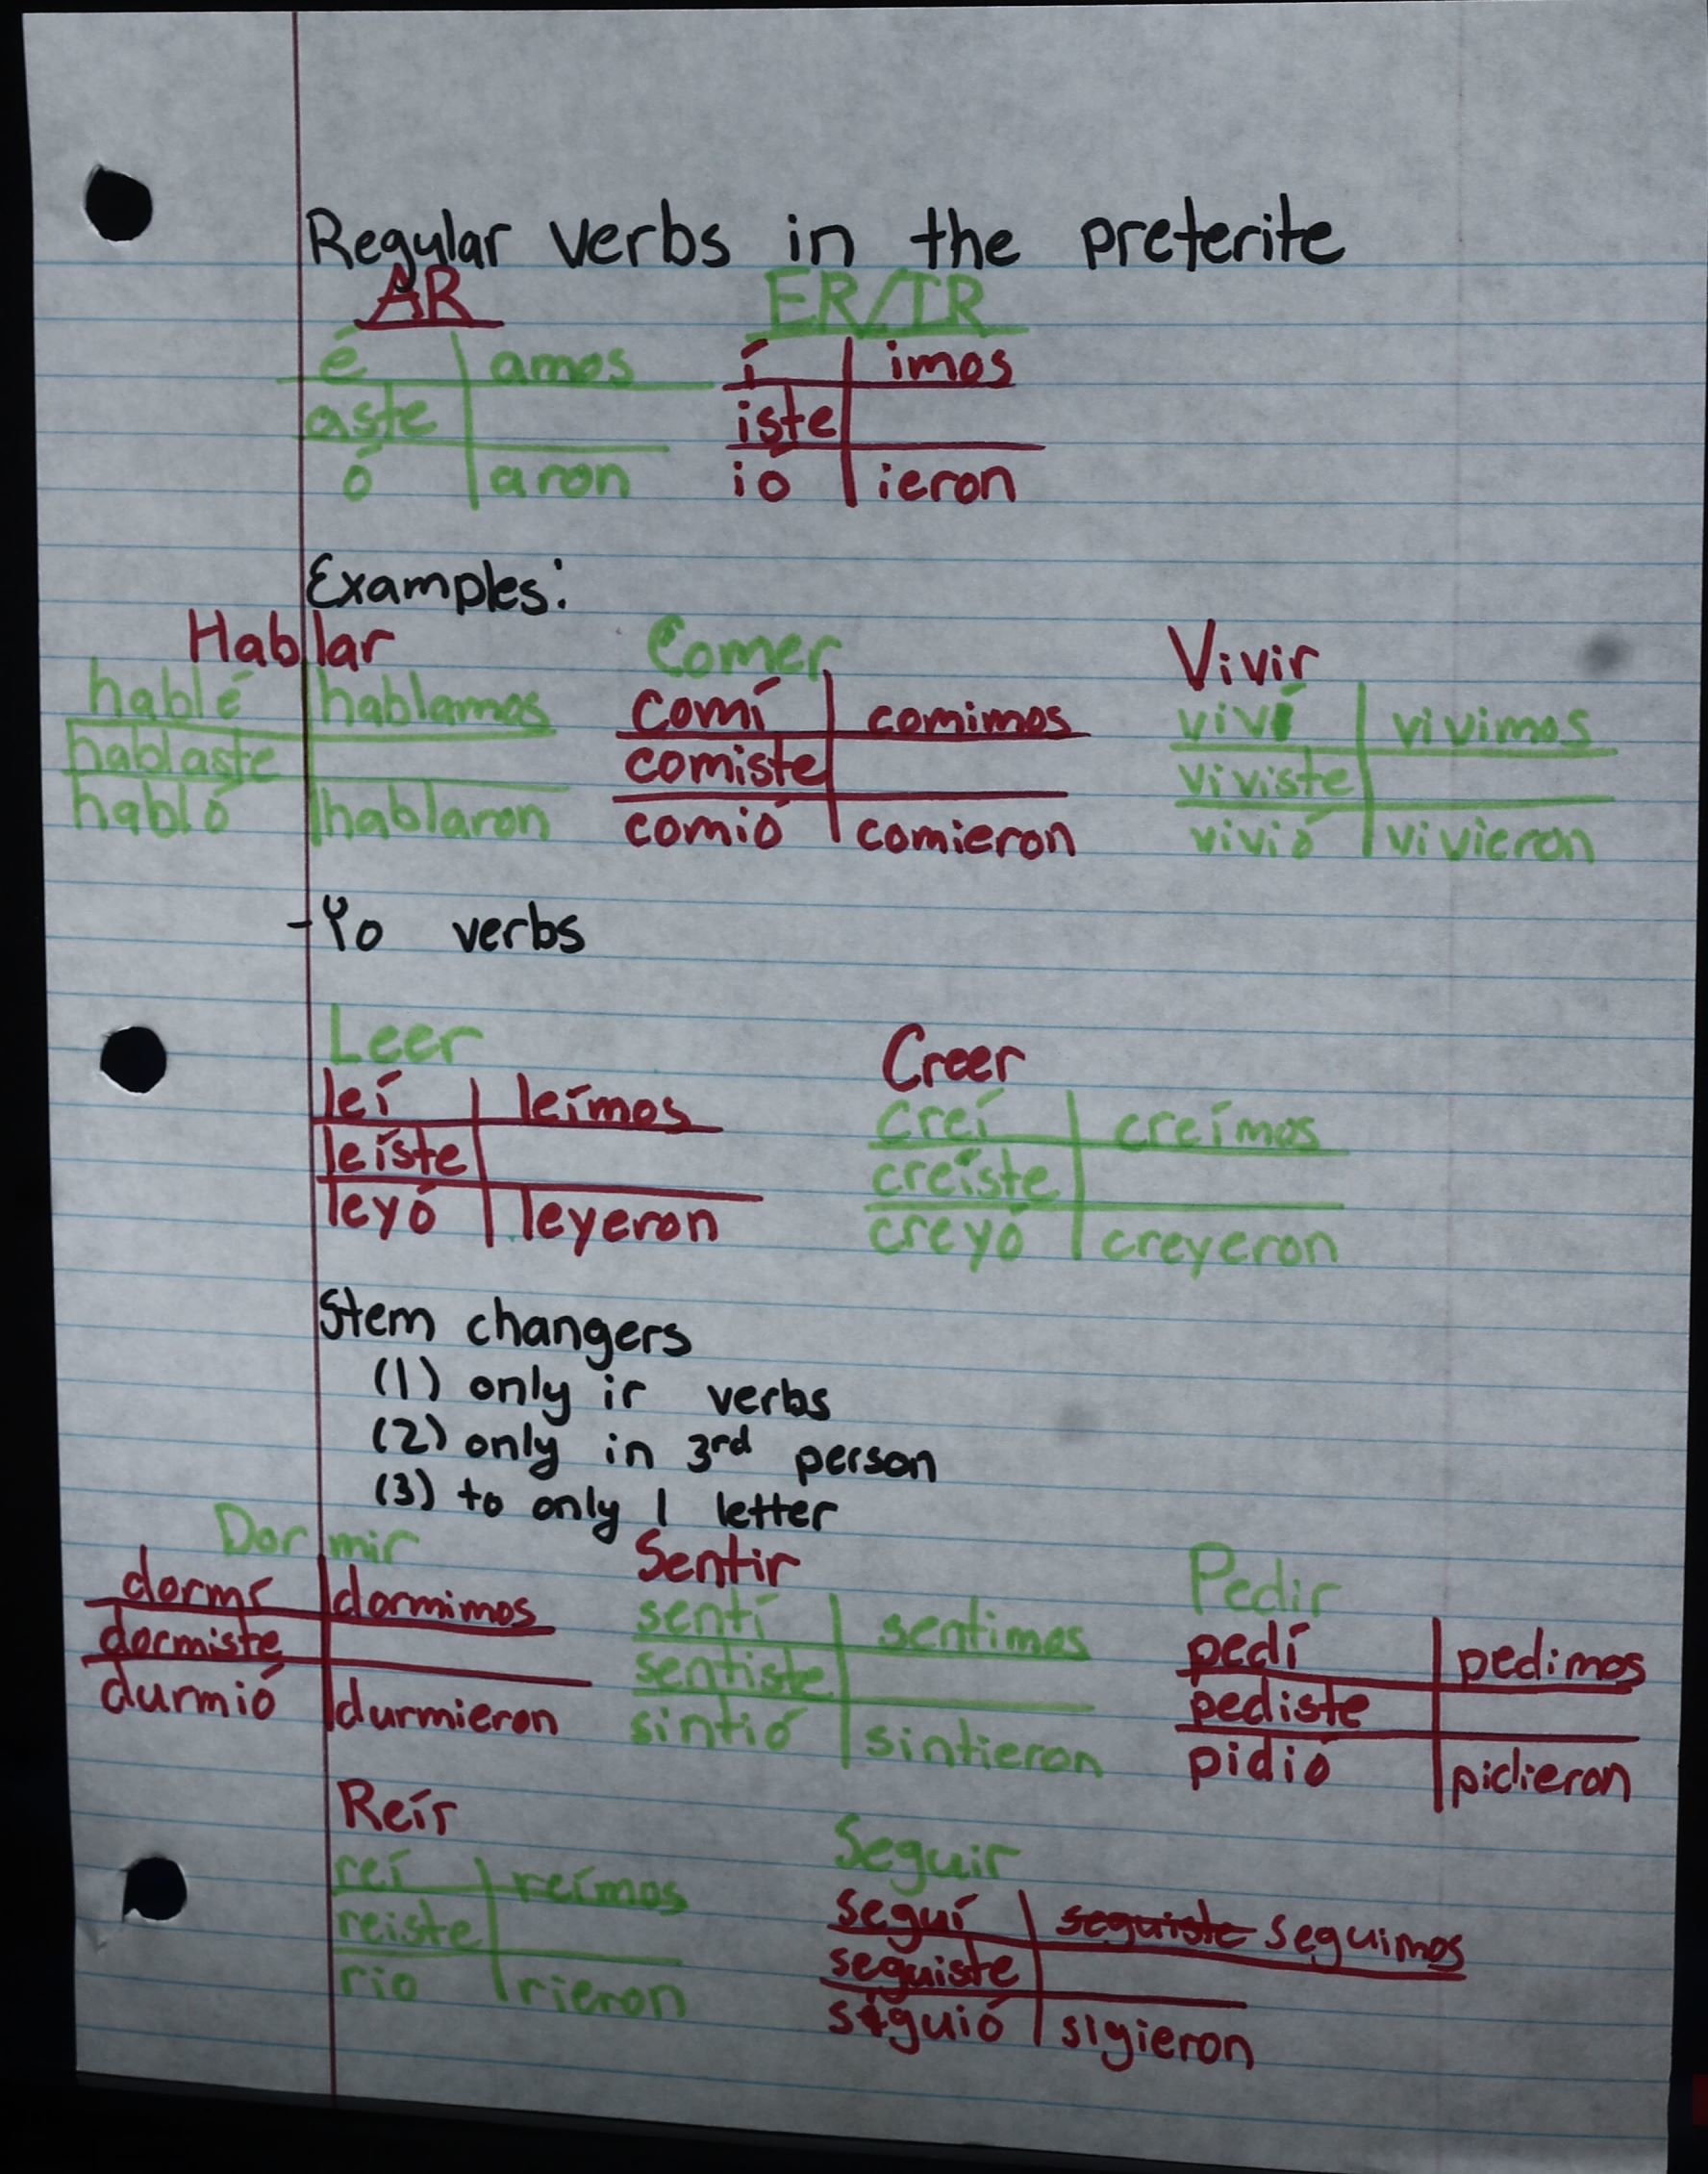 Regular verbs in the preterite
AR ER/IR
é amos í imos
aste iste
ó aron ió ieron
Examples:
Hablar Comer Vivir
hablé hablamos comí comimos viví vivimos
hablaste comiste viviste
habló hablaron comió comieron vivió vivieron
-Yo verbs
Leer Creer
leí leímos creí creímos
leíste creíste
leyó leyeron creyó creyeron
Stem changers
(1) only ir verbs
(2) only in 3rd person
(3) to only 1 letter
Dormir Sentir Pedir
dormí dormimos sentí sentimos pedí pedimos
dormiste sentiste pediste
durmió durmieron sintió sintieron pidió pidieron
Reír Seguir
reí reímos seguí seguiste seguimos
reiste seguiste
rio rieron siguió sigieron